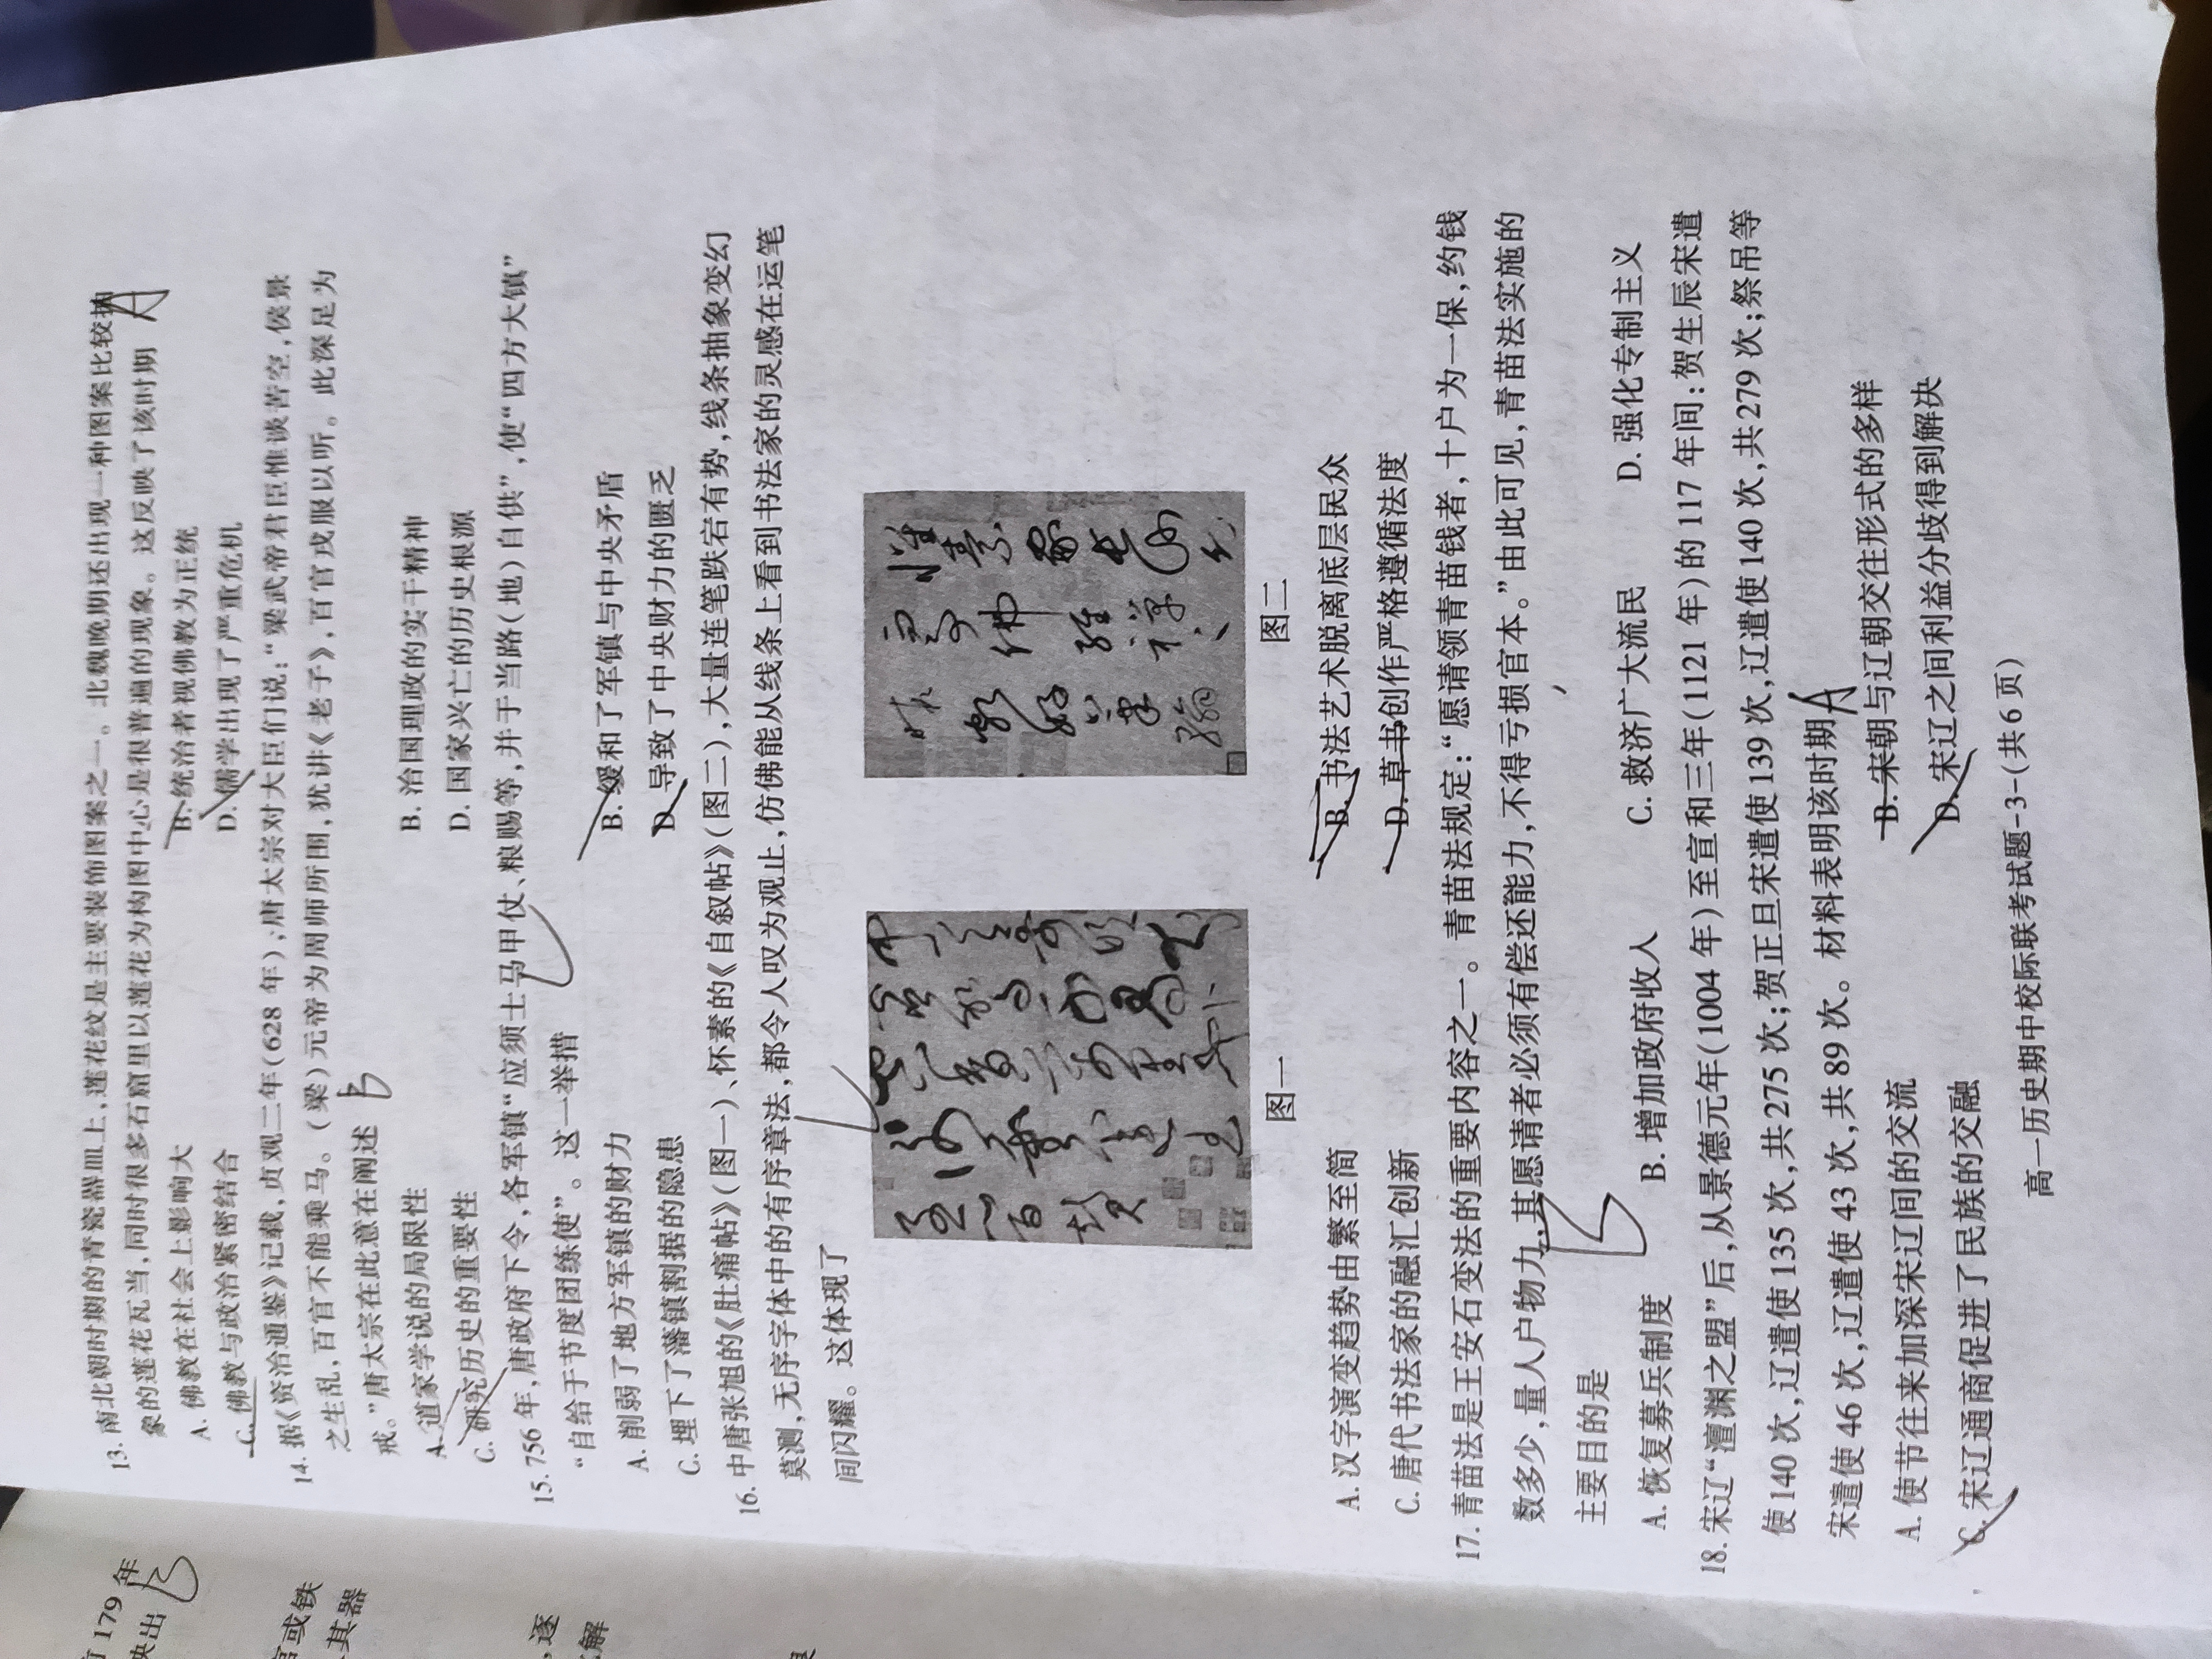 13. 南北朝时期的青瓷器皿上,莲花纹是主要装饰图案之一。北魏晚期还出现一种图案比较抽
象的莲花瓦当,同时很多石窟里以莲花为构图中心是很普遍的现象。这反映了该时期 A
A. 佛教在社会上影响大 B. 统治者视佛教为正统
C. 佛教与政治紧密结合 D. 儒学出现了严重危机
14. 据《资治通鉴》记载,贞观二年(628 年),唐太宗对大臣们说:“梁武帝君臣惟谈苦空,侯景
之生乱,百官不能乘马。(梁)元帝为周师所围,犹讲《老子》,百官戎服以听。此深足为
戒。”唐太宗在此意在阐述 B
A. 道家学说的局限性 B. 治国理政的实干精神
C. 研究历史的重要性 D. 国家兴亡的历史根源
15. 756 年,唐政府下令,各军镇“应须士马甲仗、粮赐等,并于当路(地)自供”,使“四方大镇”
“自给于节度团练使”。这一举措
A. 削弱了地方军镇的财力 B. 缓和了军镇与中央矛盾
C. 埋下了藩镇割据的隐患 D. 导致了中央财力的匮乏
16. 中唐张旭的《肚痛帖》(图一)、怀素的《自叙帖》(图二),大量连笔跌宕有势,线条抽象变幻
莫测,无序字体中的有序章法,都令人叹为观止,仿佛能从线条上看到书法家的灵感在运笔
间闪耀。这体现了
图一 图二
A. 汉字演变趋势由繁至简 B. 书法艺术脱离底层民众
C. 唐代书法家的融汇创新 D. 草书创作严格遵循法度
17. 青苗法是王安石变法的重要内容之一。青苗法规定:“愿请领青苗钱者,十户为一保,约钱
数多少,量人户物力,其愿请者必须有偿还能力,不得亏损官本。”由此可见,青苗法实施的
主要目的是 B
A. 恢复募兵制度 B. 增加政府收入 C. 救济广大流民 D. 强化专制主义
18. 宋辽“澶渊之盟”后,从景德元年(1004 年)至宣和三年(1121 年)的 117 年间:贺生辰宋遣
使 140 次,辽遣使 135 次,共 275 次;贺正旦宋遣使 139 次,辽遣使 140 次,共 279 次;祭吊等
宋遣使 46 次,辽遣使 43 次,共 89 次。材料表明该时期 A
A. 使节往来加深宋辽间的交流 B. 宋朝与辽朝交往形式的多样
C. 宋辽通商促进了民族的交融 D. 宋辽之间利益分歧得到解决
高一历史期中校际联考试题-3-(共 6 页)
179 年
映出 B
官或铁
其器
,逐
解